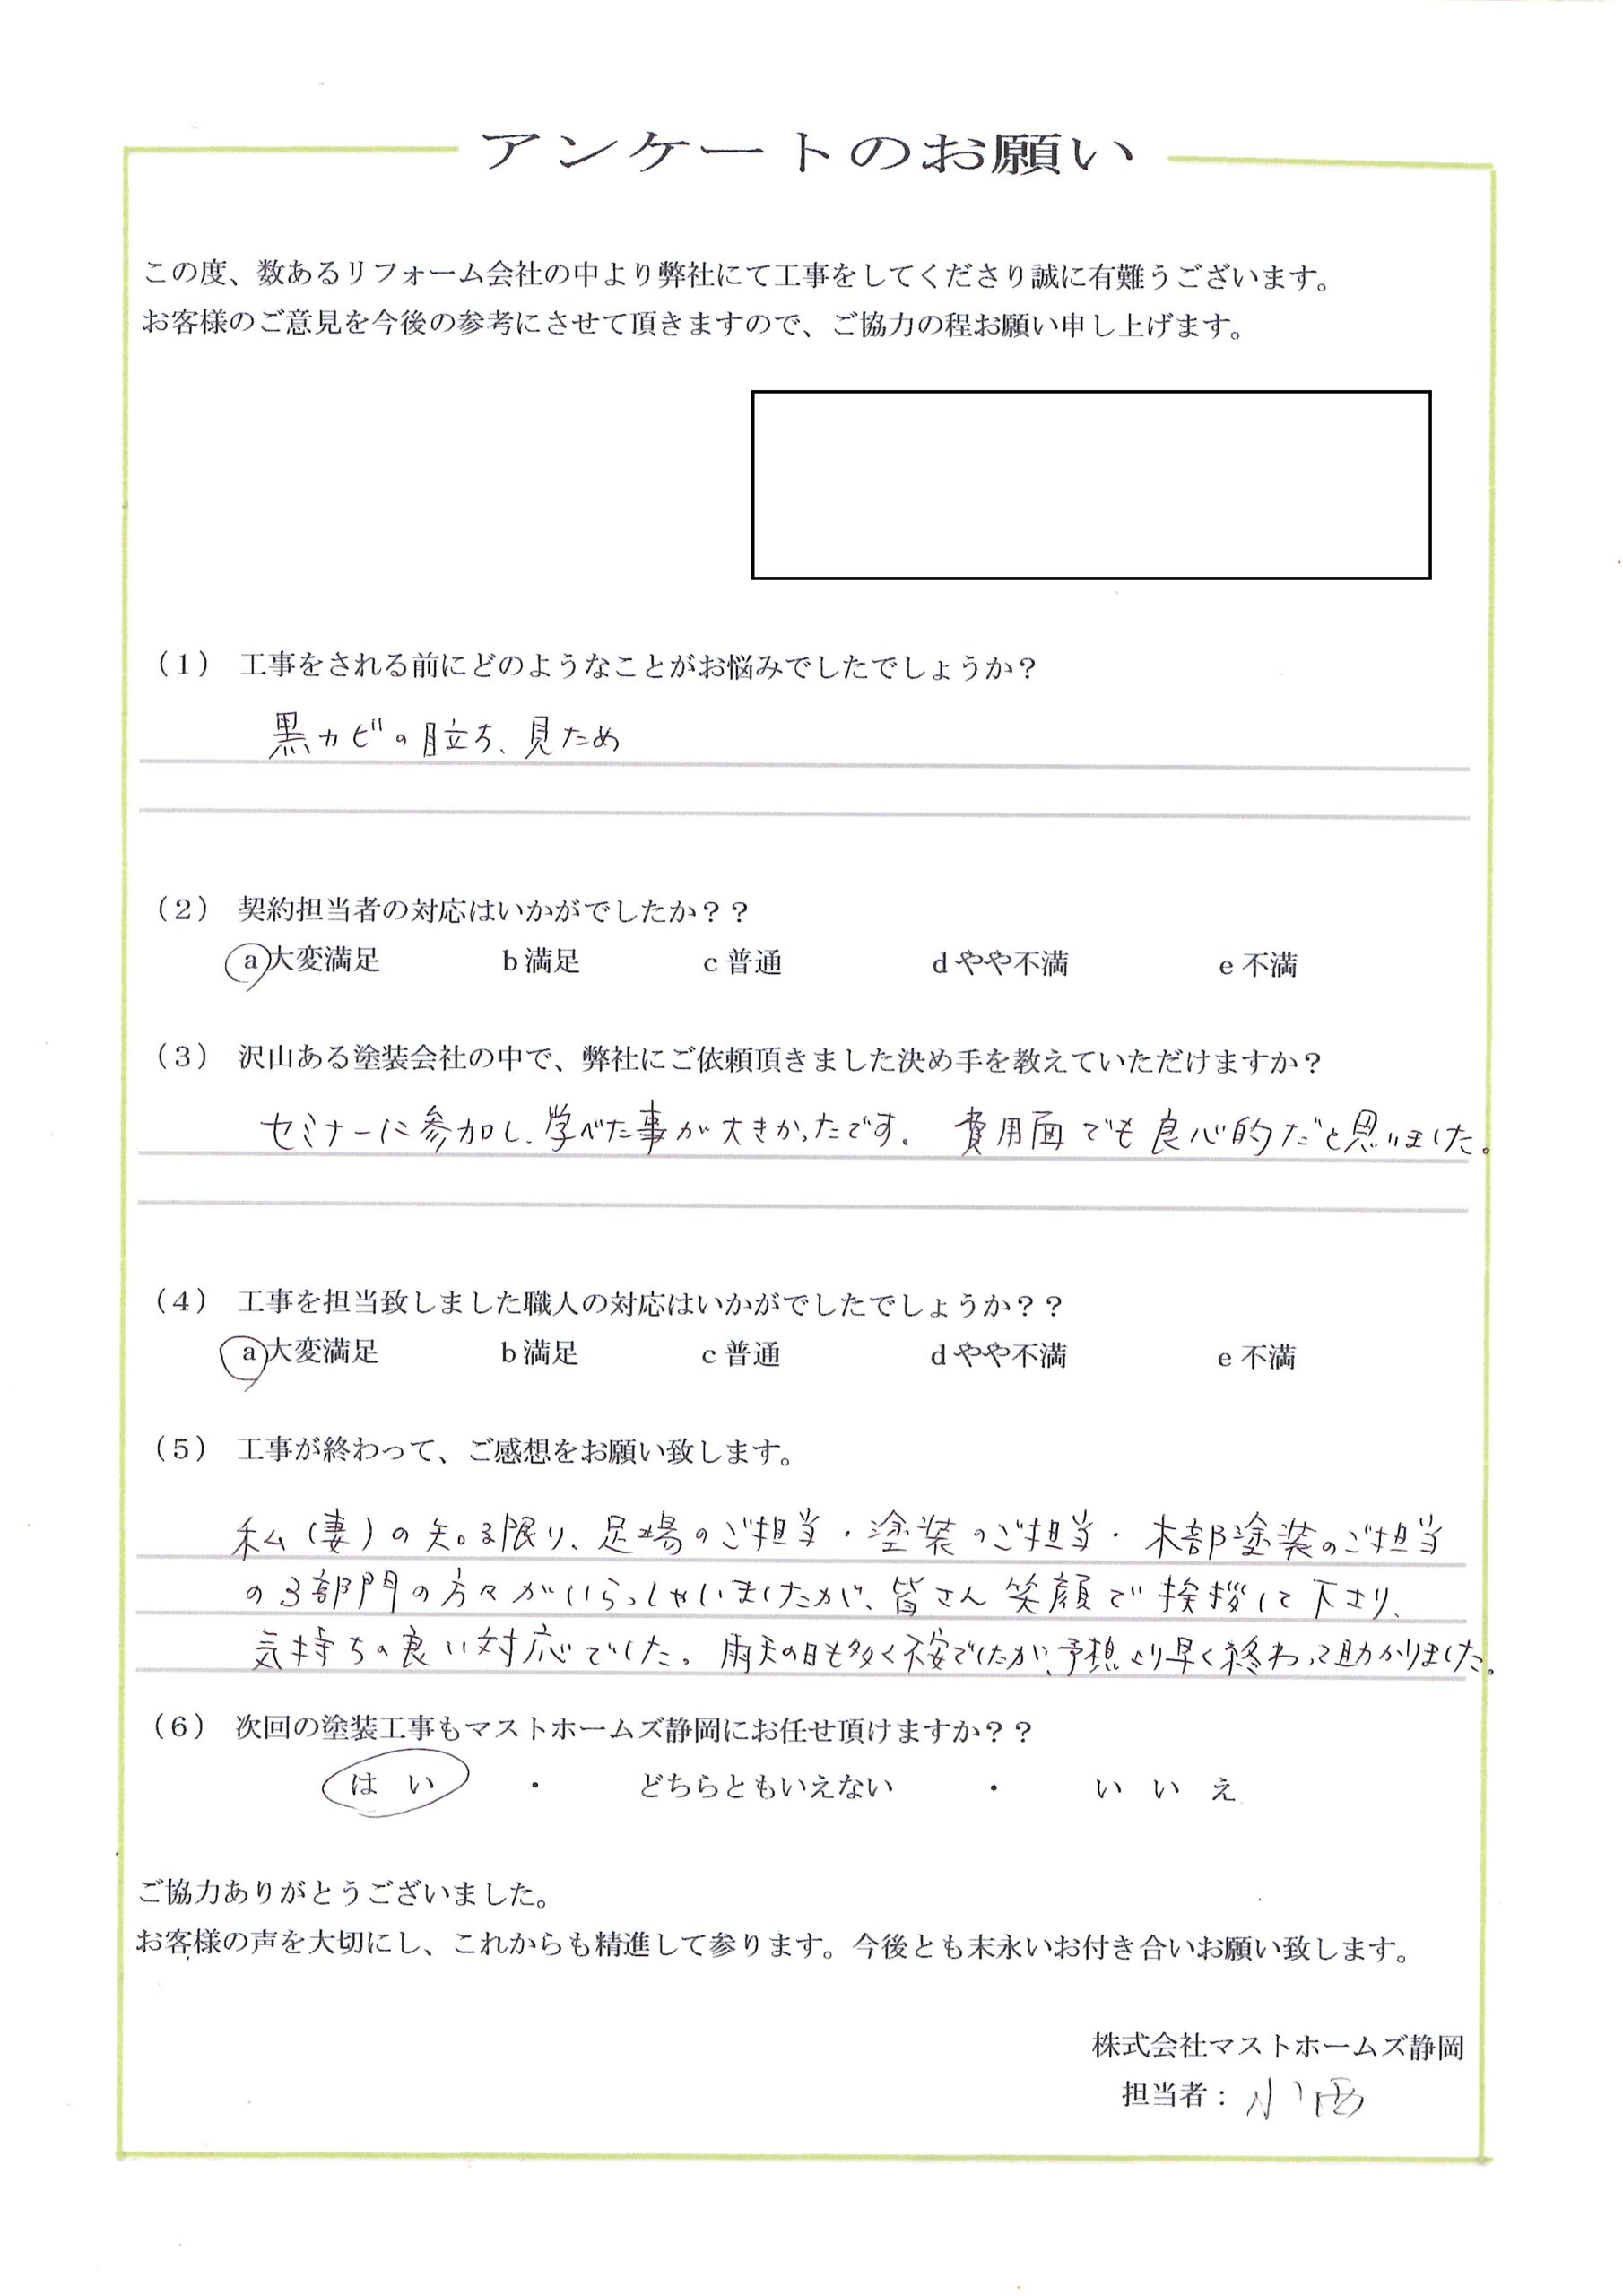 アンケートのお願い
この度、数あるリフォーム会社の中より弊社にて工事をしてくださり誠に有難うございます。
お客様のご意見を今後の参考にさせて頂きますので、ご協力の程お願い申し上げます。
（1） 工事をされる前にどのようなことがお悩みでしたでしょうか？
黒カビの目立ち、見ため
（2） 契約担当者の対応はいかがでしたか？？
a 大変満足 b 満足 c 普通 d やや不満 e 不満
（3） 沢山ある塗装会社の中で、弊社にご依頼頂きました決め手を教えていただけますか？
セミナーに参加し、学べた事が大きかったです。 費用面でも良心的だと思いました。
（4） 工事を担当致しました職人の対応はいかがでしたでしょうか？？
a 大変満足 b 満足 c 普通 d やや不満 e 不満
（5） 工事が終わって、ご感想をお願い致します。
私（妻）の知る限り、足場のご担当・塗装のご担当・木部塗装のご担当
の3部門の方々がいらっしゃいましたが、皆さん笑顔で挨拶して下さり、
気持ちの良い対応でした。雨天の日も多く不安でしたが、予想より早く終わって助かりました。
（6） 次回の塗装工事もマストホームズ静岡にお任せ頂けますか？？
はい ・ どちらともいえない ・ いいえ
ご協力ありがとうございました。
お客様の声を大切にし、これからも精進して参ります。今後とも末永いお付き合いお願い致します。
株式会社マストホームズ静岡
担当者：小西